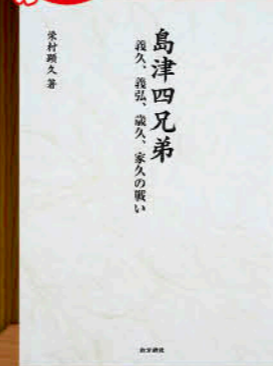 島津四兄弟
義久、義弘、歳久、家久の戦い
栄村顕久 著